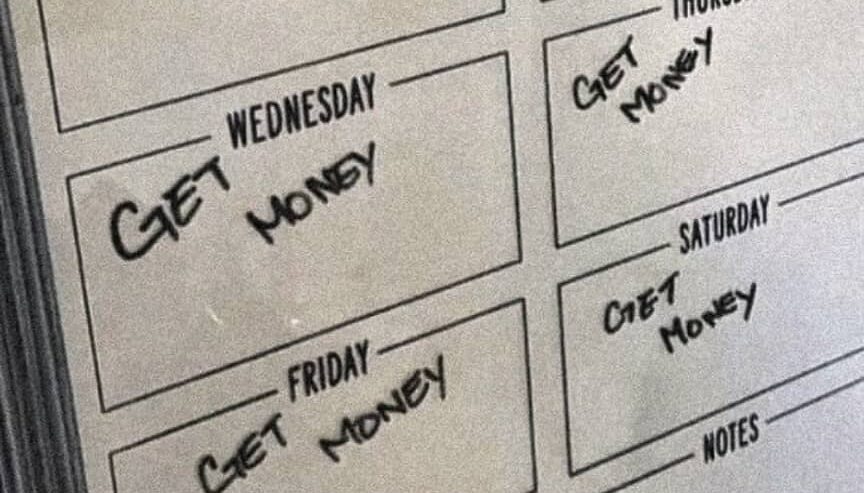 WEDNESDAY
GET MONEY
GET
MONEY
FRIDAY
GET MONEY
SATURDAY
GET
MONEY
NOTES